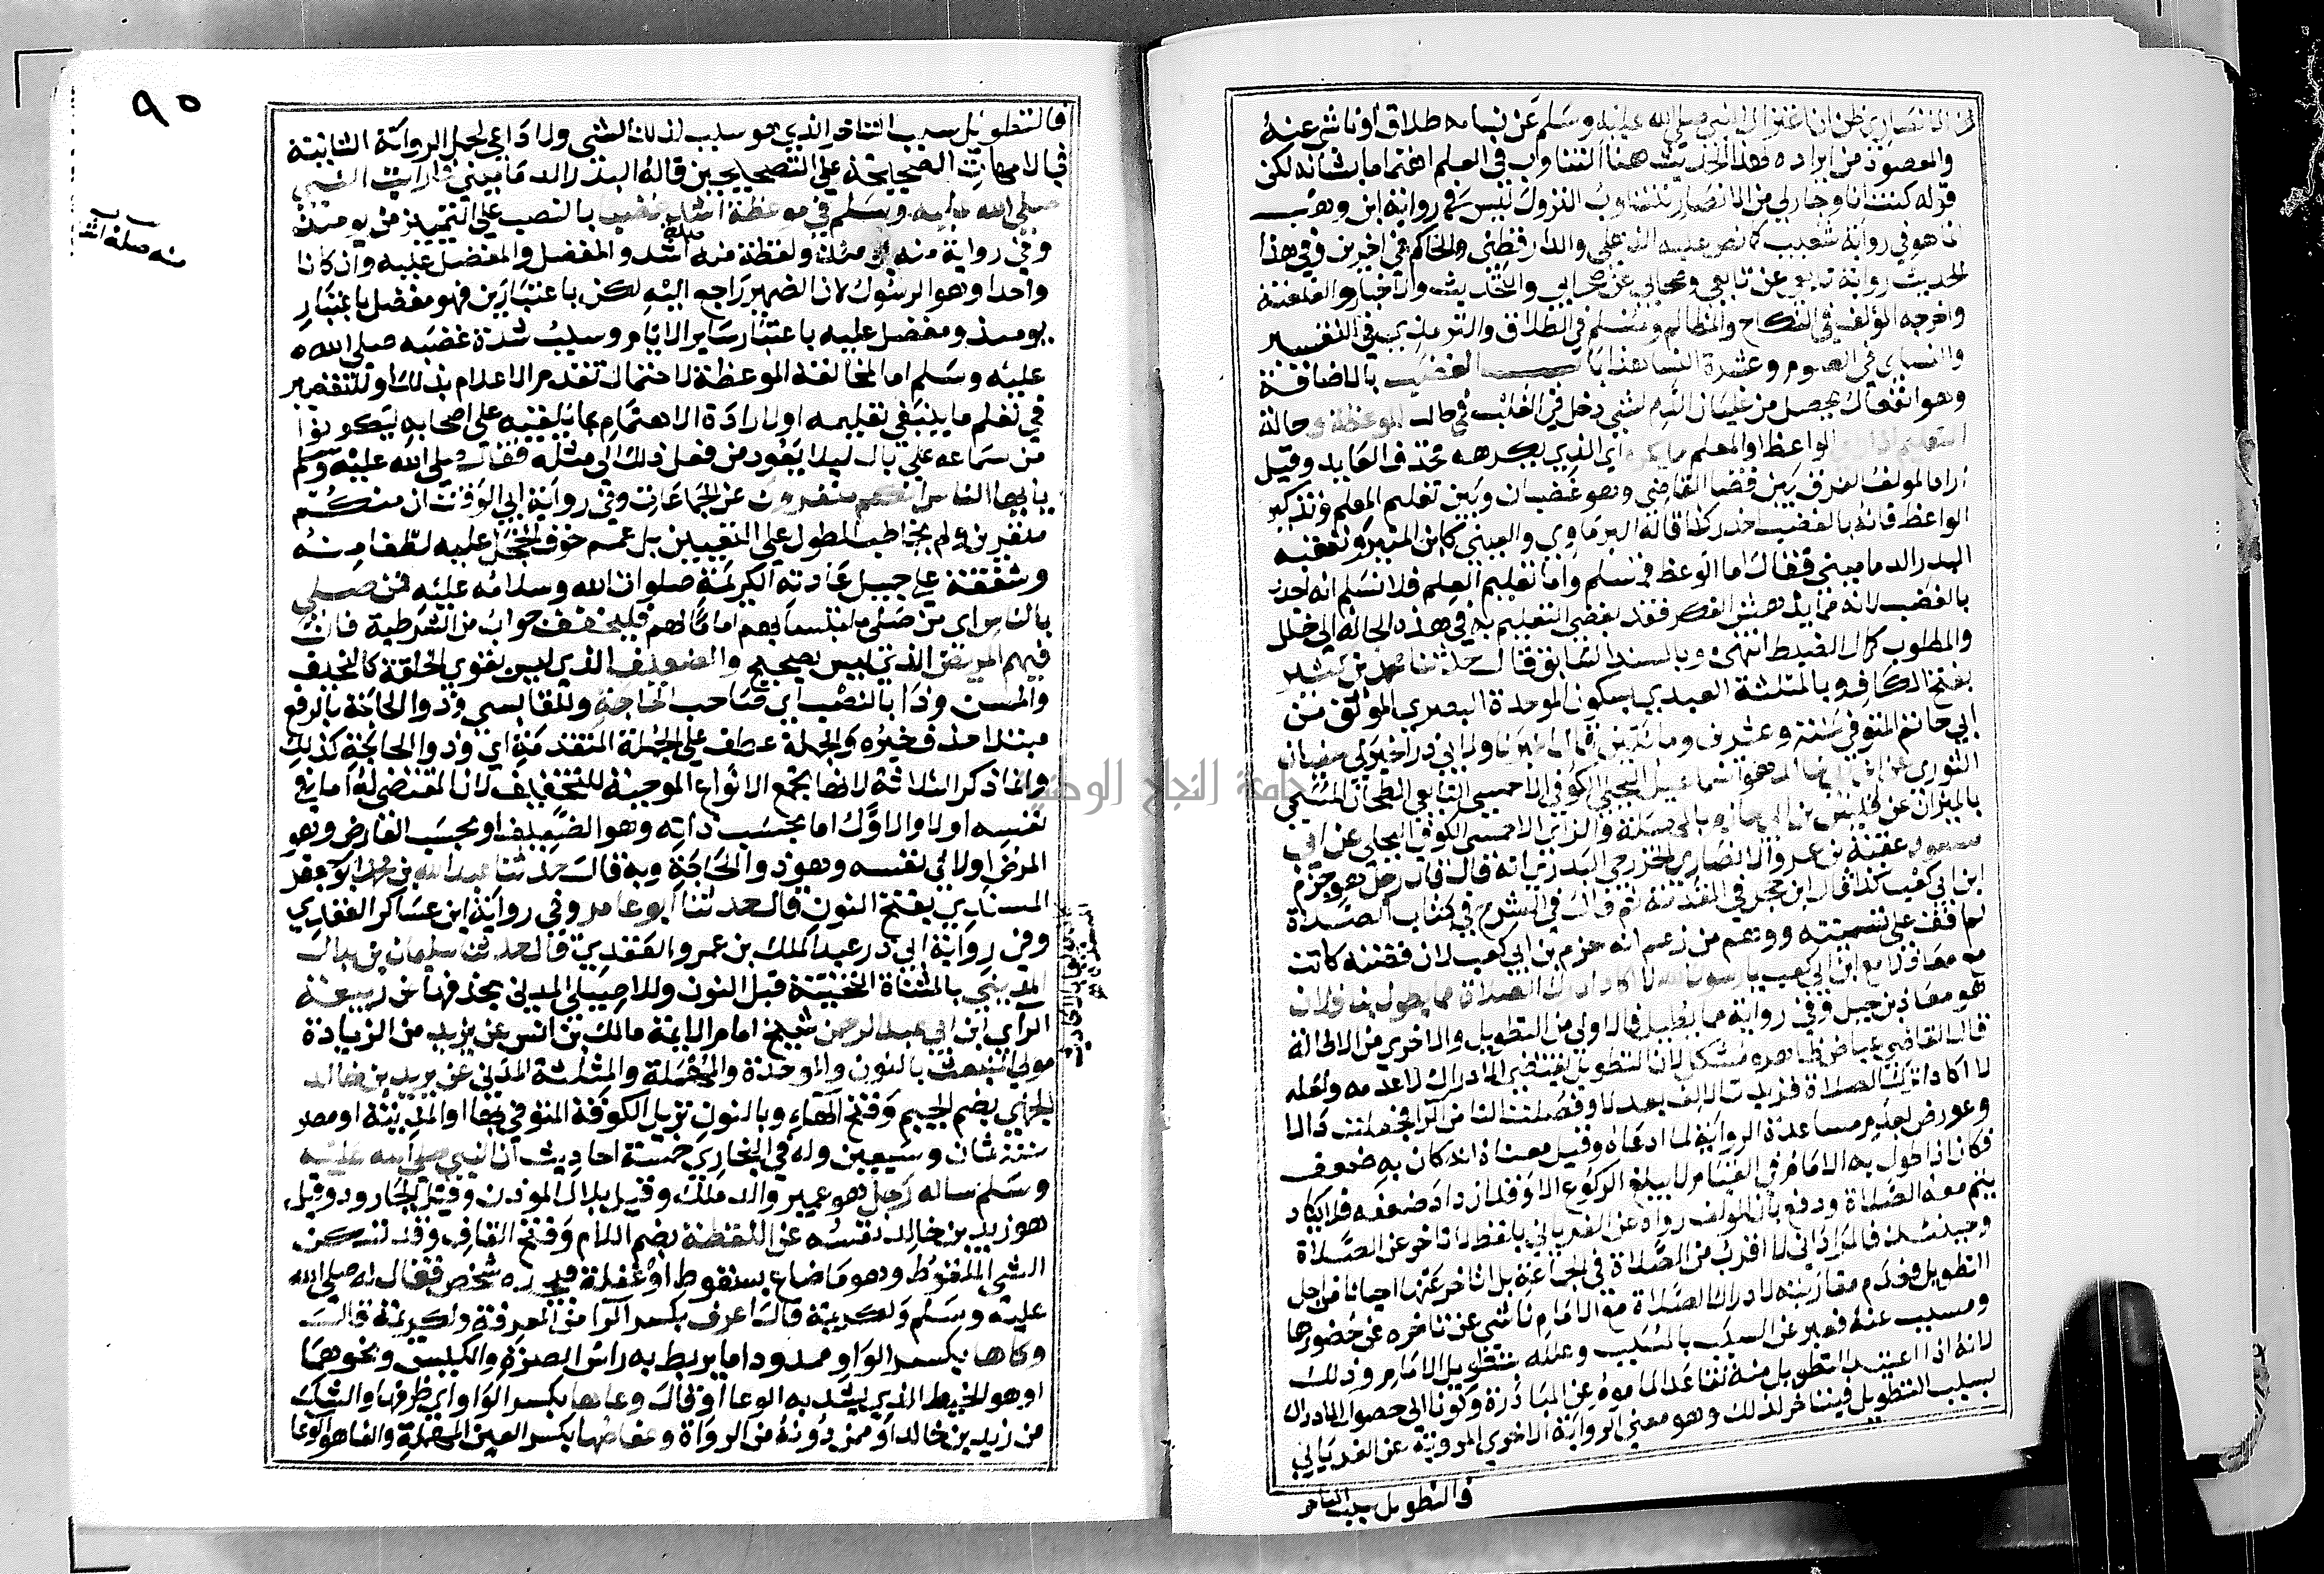 لان الانصاري ظن ان اعتزال النبي صلى الله عليه وسلم عن نسايه طلاق او ناشي عنه
والمقصود من ايراده لهذا الحديث هنا التناوب في العلم اهتماما بشانه لكن
قوله كنت انا وجار لي من الانصار نتناوب النزول ليس في رواية ابن وهب
انما هو في رواية شعيب كما نص عليه الذهلي والدارقطني والحاكم في اخرين وفي هذا
الحديث رواية تابعي عن تابعي وصحابي عن صحابي والتحديث والاخبار والعنعنة
واخرجه المؤلف في النكاح والمظالم ومسلم في الطلاق والترمذي في التفسير
والنساي في الصوم وعشرة النسا هذا باب الغضب بالاضافة
وهو انفعال يحصل من غليان الدم لشي دخل في القلب في حالة الموعظة وحالة
التعليم اذا راى الواعظ او المعلم ما يكره اي الذي يكرهه فحذف العايد وقيل
اراد المؤلف الفرق بين قضا القاضي وهو غضبان وبين تعليم المعلم وتذكير
الواعظ فانه بالغضب اجدر كذا قاله البرماوي والعيني كابن المنير وتعقبه
البدر الدماميني فقال اما الوعظ فمسلم واما تعليم العلم فلا نسلم انه اجدر
بالغضب لانه مما يدهش الفكر فقد يفضي التعليم به في هذه الحالة الى خلل
والمطلوب كمال الضبط انتهى وبالسند السابق قال حدثنا محمد بن كثير
بفتح الكاف وبالمثلثة العبدي بسكون الموحدة البصري الموثق من
ابي حاتم المتوفى سنة وعشرين ومائتين قال اخبرنا ولابي ذر اخبرني سفيان
الثوري عن ابن ابي خالد هو اسماعيل البجلي الكوفي الاحمسي التابعي الطحان المسمى
بالميزان عن قيس بن ابي حازم بالمهملة والزاي الاحمسي الكوفي البجلي عن ابي
مسعود عقبة بن عمرو الانصاري الخزرجي البدري انه قال قال رجل هو حزم
ابن ابي كعب كذا قال ابن حجر في المقدمة ثم قال في الشرح في كتاب الصلاة
لم اقف على تسميته ووهم من زعم انه حزم بن ابي كعب لان قصته كانت
مع معاذ لا مع ابن ابي كعب يا رسول الله لا اكاد ادرك الصلاة مما يطول بنا فلان
هو معاذ بن جبل وفي رواية مما يطيل فالاولى من التطويل والاخرى من الاطالة
قال القاضي عياض ظاهره مشكل لان التطويل يقتضي الادراك لا عدمه ولعله
لا اكاد اترك الصلاة فزيدت الالف بعد لا وفصلت التا من الرا فجعلت دالا
وعورض بعدم مساعدة الرواية لما ادعاه وقيل معناه انه كان به ضعف
فكان اذا طول به الامام في القيام لا يبلغ الركوع الا وقد ازداد ضعفه فلا يكاد
يتم معه الصلاة ودفع بان المؤلف رواه عن الفريابي بلفظ لاتاخر عن الصلاة
وحينئذ فالمراد اني لا اقرب من الصلاة في الجماعة بل اتاخر عنها احيانا من اجل
التطويل فعدم مقاربته لادراك الصلاة مع الامام ناشي عن تاخره عن حضورها
ومسبب عنه فعبر عن السبب بالمسبب وعلله بتطويل الامام وذلك
لانه اذا اعتيد التطويل منه تقاعد الماموم عن المبادرة ركونا الى حصول الادراك
بسبب التطويل فيتاخر لذلك وهو معنى الرواية الاخرى المروية عن الفريابي
فالتطويل سبب التاخر
٩٠
فالتطويل سبب التاخر الذي هو سبب لذلك الشي ولا داعي لحمل الرواية الثابتة
في الامهات الصحيحة على التصحيح قاله البدر الدماميني فما رايت النبي
صلى الله عليه وسلم في موعظة اشد غضبا بالنصب على التمييز من يومئذ
وفي رواية منه اي مثله ولفظة منه صلة اشد والمفضل والمفضل عليه وان كانا
منه صلة اشد
واحدا وهو الرسول لان الضمير راجع اليه لكن باعتبارين فهو مفضل باعتبار
يومئذ ومفضل عليه باعتبار ساير الايام وسبب شدة غضبه صلى الله
عليه وسلم اما لمخالفة الموعظة لاحتمال تقدم الاعلام بذلك او للتقصير
في تعلم ما ينبغي تعليمه او لارادة الاهتمام بما يلقيه على اصحابه ليكونوا
من سماعه على بال ليلا يعود من فعل ذلك الى مثله فقال صلى الله عليه وسلم
يا ايها الناس انكم منفرون عن الجماعات وفي رواية ابي الوقت ان منكم
منفرين ولم يخاطب المطول على التعيين بل عمم خوف الخجل عليه لطفا منه
وشفقة على جميل عادته الكريمة صلوات الله وسلامه عليه فمن صلى
بالناس اي من صلى ملتبسا بهم اماما لهم فليخفف جواب من الشرطية فان
فيهم المريض الذي ليس بصحيح والضعيف الذي ليس بقوي الخلقة كالنحيف
والمسن وذا بالنصب اي صاحب الحاجة وللقابسي وذو الحاجة بالرفع
مبتدا حذف خبره والجملة عطف على الجملة المتقدمة اي وذو الحاجة كذلك
وانما ذكر الثلاثة لانها تجمع الانواع الموجبة للتخفيف لان المقتضي له اما في
نفسه او لا والاول اما بحسب ذاته وهو الضعيف او بحسب العارض وهو
المرض او لا في نفسه وهو ذو الحاجة وبه قال حدثنا عبد الله بن محمد ابو جعفر
المسندي بفتح النون قال حدثنا ابو عامر وفي رواية ابن عساكر العقدي
وفي رواية ابي ذر عبد الملك بن عمرو العقدي قال حدثنا سليمان بن بلال
المديني بالمثناة التحتية قبل النون وللاصيلي المدني بحذفها عن ربيعة
الراي ابن ابي عبد الرحمن شيخ امام الايمة مالك بن انس عن يزيد من الزيادة
مولى المنبعث بالنون والموحدة والمهملة والمثلثة المدني عن زيد بن خالد
الجهني بضم الجيم وفتح الهاء وبالنون نزيل الكوفة المتوفى بها او المدينة او مصر
سنة ثمان وسبعين وله في البخاري خمسة احاديث ان النبي صلى الله عليه
وسلم ساله رجل هو عمير والد مالك وقيل بلال المؤذن وقيل الجارود وقيل
هو زيد بن خالد نفسه عن اللقطة بضم اللام وفتح القاف وقد تسكن
الشي الملقوط وهو ما ضاع بسقوط او غفلة فيجده شخص فقال له صلى الله
عليه وسلم ولكريمة قال اعرف بكسر الرا من المعرفة ولكريمة قال
وكاها بكسر الواو ممدودا ما يربط به راس الصرة والكيس ونحوهما
او هو الخيط الذي يشد به الوعا او قال وعاها بكسر الواو اي ظرفها والشك
من زيد بن خالد او ممن دونه من الرواة وعفاصها بكسر العين المهملة والفا هو الوعا
جامعة النجاح الوطنية